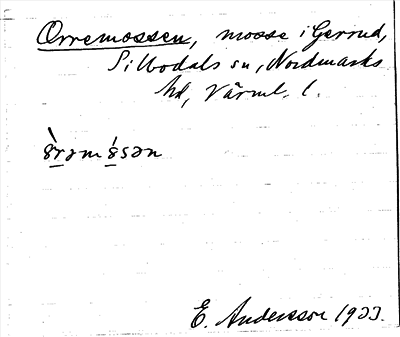 Orremossen, mosse i Gerrud,
Silbodals sn, Nordmarks
hd, Värml. l.
E. Andersson 1933.